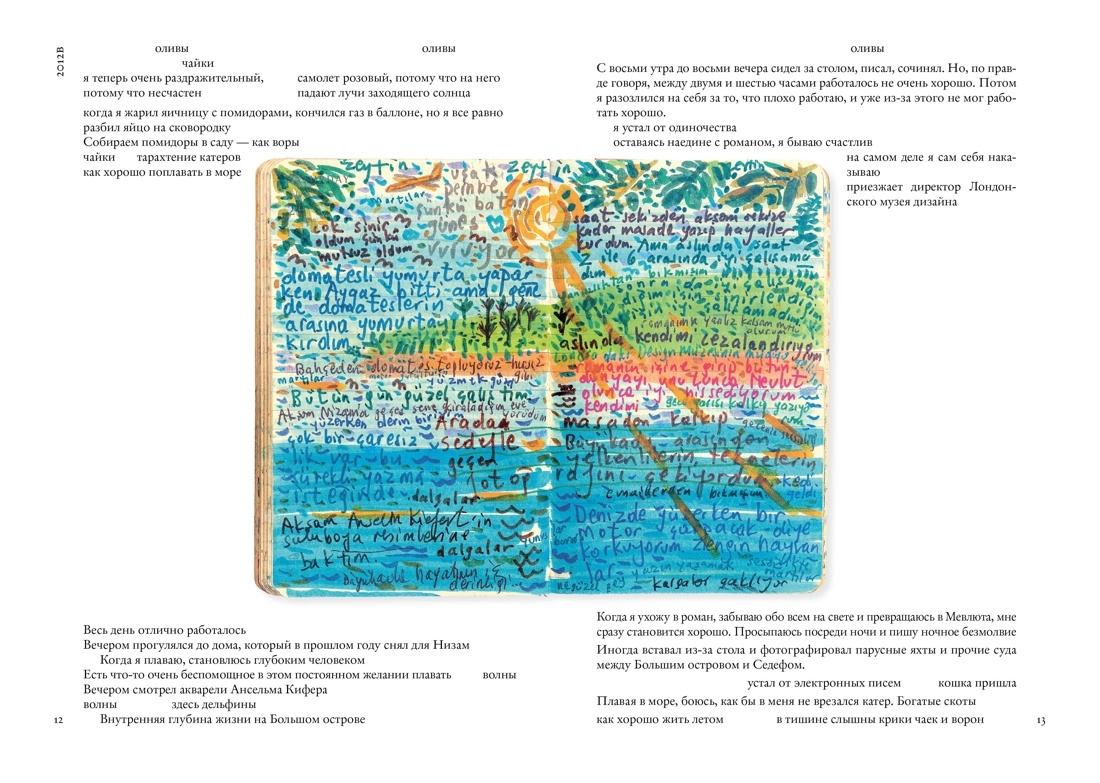 2012В
оливы
оливы
чайки
я теперь очень раздражительный,
потому что несчастен
самолет розовый, потому что на него
падают лучи заходящего солнца
когда я жарил яичницу с помидорами, кончился газ в баллоне, но я все равно
разбил яйцо на сковородку
Собираем помидоры в саду — как воры
чайки
тарахтение катеров
как хорошо поплавать в море
zeytin
zeytin
martılar
uçak
pembe
çünkü batan
güneş
vuruyor
çok sinirli
oldum çünkü
mutsuz oldum
domatesli yumurta yapar
ken Aygaz bitti ama gene
de domateslerin
arasına yumurtayı
kırdım
Bahçeden domates topluyoruz hırsız
gibi
martılar
yüzmek güzel
Bütün gün güzel çalıştım
Akşam Nizama geçen sene kiraladığım eve
yürüdüm
yüzerken derin biriyim
Aradan
sedefle
geçen
fotoğ
çok bir çaresiz
lik var bu
sürekli yazma
isteğinde
dalgalar
Akşam Anselm Kiefer'in
suluboya resimlerine
baktım
dalgalar
Büyükada hayatının iç
derinliği
Весь день отлично работалось
Вечером прогулялся до дома, который в прошлом году снял для Низам
Когда я плаваю, становлюсь глубоким человеком
Есть что-то очень беспомощное в этом постоянном желании плавать
волны
Вечером смотрел акварели Ансельма Кифера
волны
здесь дельфины
Внутренняя глубина жизни на Большом острове
12
оливы
С восьми утра до восьми вечера сидел за столом, писал, сочинял. Но, по прав-
де говоря, между двумя и шестью часами работалось не очень хорошо. Потом
я разозлился на себя за то, что плохо работаю, и уже из-за этого не мог рабо-
тать хорошо.
я устал от одиночества
оставаясь наедине с романом, я бываю счастлив
на самом деле я сам себя нака-
зываю
приезжает директор Лондон-
ского музея дизайна
saat sekizden akşam sekize
kadar masada yazıp hayaller
kurdum. Ama aslında saat
2 ile 6 arasında iyi çalışama
dım
aslında kendimi cezalandırıyorum
Londra'daki Design Müzesinin müdürü
Romanın içine girip bütün
dünyayı unutunca, Mevlut
olunca iyi hissediyorum
kendimi
gece yarısı kalkıp yazıyo
rum
masadan kalkıp
gecenin sessizliği
Büyükada arasından
yelkenlilerin teknelerin
kedi
geldi
Emaillerden bıkmışım
Denizde yüzerken bir
motor çarpacak diye
korkuyorum. Zengin hayvan
lar
yazın yaşamak
sessizlikte
martılar
ne güzel şey
kargalar gaklıyor
Когда я ухожу в роман, забываю обо всем на свете и превращаюсь в Мевлюта, мне
сразу становится хорошо. Просыпаюсь посреди ночи и пишу ночное безмолвие
Иногда вставал из-за стола и фотографировал парусные яхты и прочие суда
между Большим островом и Седефом.
устал от электронных писем
кошка пришла
Плавая в море, боюсь, как бы в меня не врезался катер. Богатые скоты
как хорошо жить летом
в тишине слышны крики чаек и ворон
13